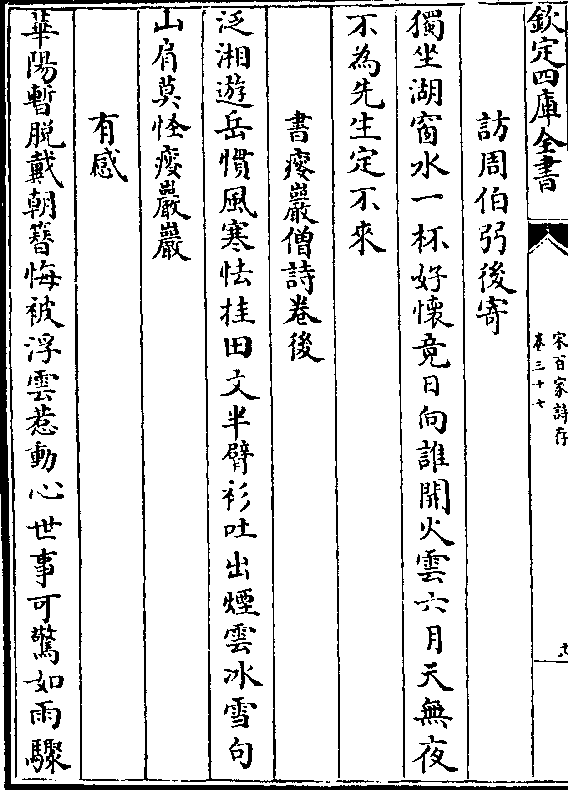 欽定四庫全書
宋百家詩存
卷三十七
訪周伯弜後寄
獨坐湖窗水一杯好懷竟日向誰開火雲六月天無夜
不為先生定不來
書癭巖僧詩卷後
泛湘遊岳慣風寒怯挂田文半臂衫吐出煙雲冰雪句
山肩莫怪癭巖巖
有感
華陽暫脱戴朝簪悔被浮雲惹動心世事可驚如雨驟